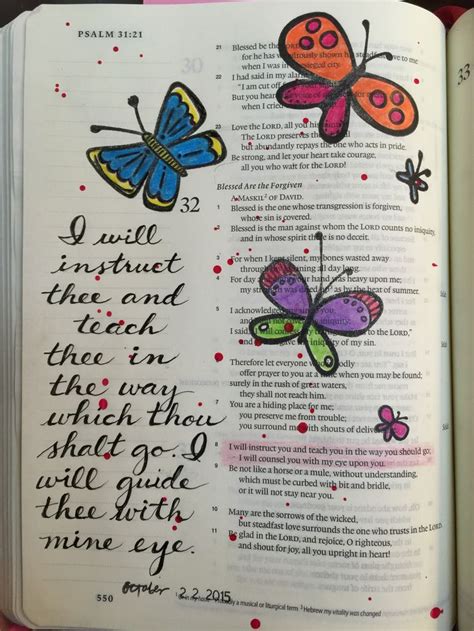 PSALM 31:21
30
21 Blessed be the LORD,
for he has wondrously shown his steadfast love to me
when I was in a besieged city.
22 I had said in my alarm,
"I am cut off
But you heard the voice of
when I cried
23 Love the LORD, all you his
The LORD preserves the
but abundantly repays the one who acts in pride.
24 Be strong, and let your heart take courage,
all you who wait for the LORD!
Blessed Are the Forgiven
A MASKIL OF DAVID.
32
1 Blessed is the one whose transgression is forgiven,
whose sin is covered.
2 Blessed is the man against whom the LORD counts no iniquity,
and in whose spirit there is no deceit.
3 For when I kept silent, my bones wasted away
through my groaning all day long.
4 For day and night your hand was heavy upon me;
my strength was dried up as by the heat of summer.
5 I acknowledged my sin to you,
and I did not cover my iniquity;
I said, "I will confess my transgressions to the LORD,"
and you forgave the iniquity of my sin.
6 Therefore let everyone who is godly
offer prayer to you at a time when you may be found;
surely in the rush of great waters,
they shall not reach him.
7 You are a hiding place for me;
you preserve me from trouble;
you surround me with shouts of deliverance.
8 I will instruct you and teach you in the way you should go;
I will counsel you with my eye upon you.
9 Be not like a horse or a mule, without understanding,
which must be curbed with bit and bridle,
or it will not stay near you.
10 Many are the sorrows of the wicked,
but steadfast love surrounds the one who trusts in the LORD.
11 Be glad in the LORD, and rejoice, O righteous,
and shout for joy, all you upright in heart!
I will
instruct
thee and
teach
thee in
the way
which thou
shalt go. I
will guide
thee with
mine eye.
October 2.2.2015
550
a musical or liturgical term Hebrew my vitality was changed